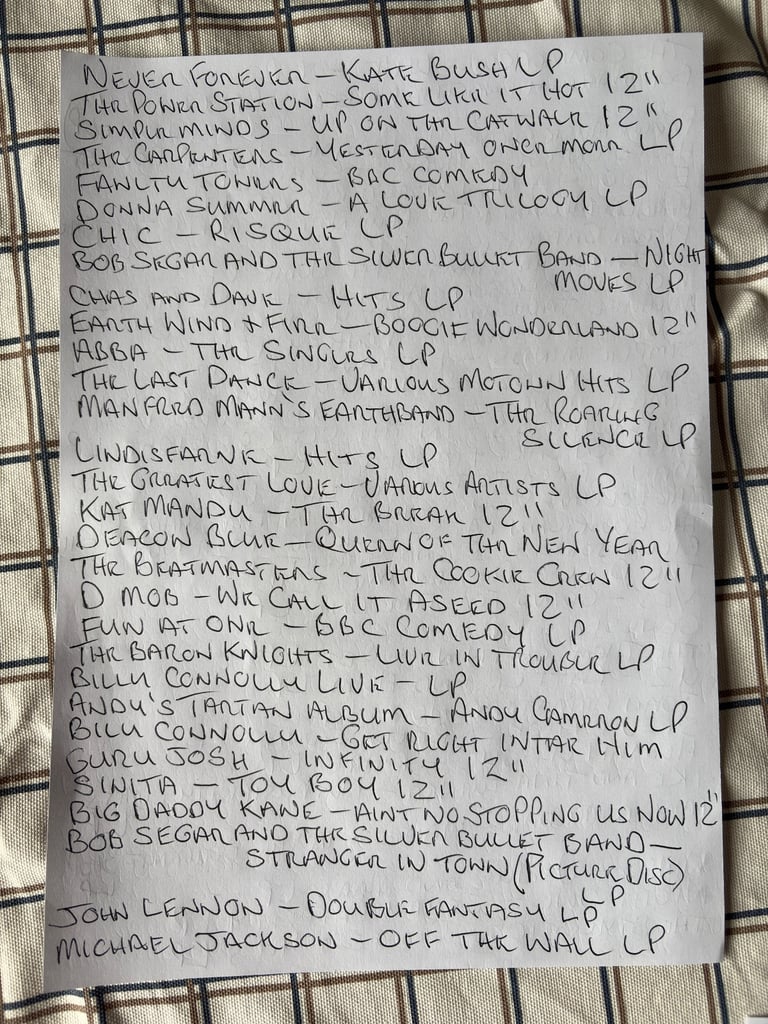 NEVER FOREVER – KATE BUSH LP
THE POWER STATION – SOME LIKE IT HOT 12"
SIMPLE MINDS – UP ON THE CATWALK 12"
THE CARPENTERS – YESTERDAY ONCE MORE LP
FAWLTY TOWERS – BBC COMEDY
DONNA SUMMER – A LOVE TRILOGY LP
CHIC – RISQUE LP
BOB SEGAR AND THE SILVER BULLET BAND – NIGHT
MOVES LP
CHAS AND DAVE – HITS LP
EARTH WIND + FIRE – BOOGIE WONDERLAND 12"
ABBA – THE SINGLES LP
THE LAST DANCE – VARIOUS MOTOWN HITS LP
MANFRED MANN'S EARTHBAND – THE ROARING
SILENCE LP
LINDISFARNE – HITS LP
THE GREATEST LOVE – VARIOUS ARTISTS LP
KAT MANDU – THE BREAK 12"
DEACON BLUE – QUEEN OF THE NEW YEAR
THE BEATMASTERS – THE COOKIE CREW 12"
D MOB – WE CALL IT ASEED 12"
FUN AT ONE – BBC COMEDY LP
THE BARON KNIGHTS – LIVE IN TROUBLE LP
BILLY CONNOLLY LIVE – LP
ANDY'S TARTAN ALBUM – ANDY CAMERON LP
BILLY CONNOLLY – GET RIGHT INTAE HIM
GURU JOSH – INFINITY 12"
SINITA – TOY BOY 12"
BIG DADDY KANE – AINT NO STOPPING US NOW 12"
BOB SEGAR AND THE SILVER BULLET BAND –
STRANGER IN TOWN (PICTURE DISC)
LP
JOHN LENNON – DOUBLE FANTASY LP
MICHAEL JACKSON – OFF THE WALL LP